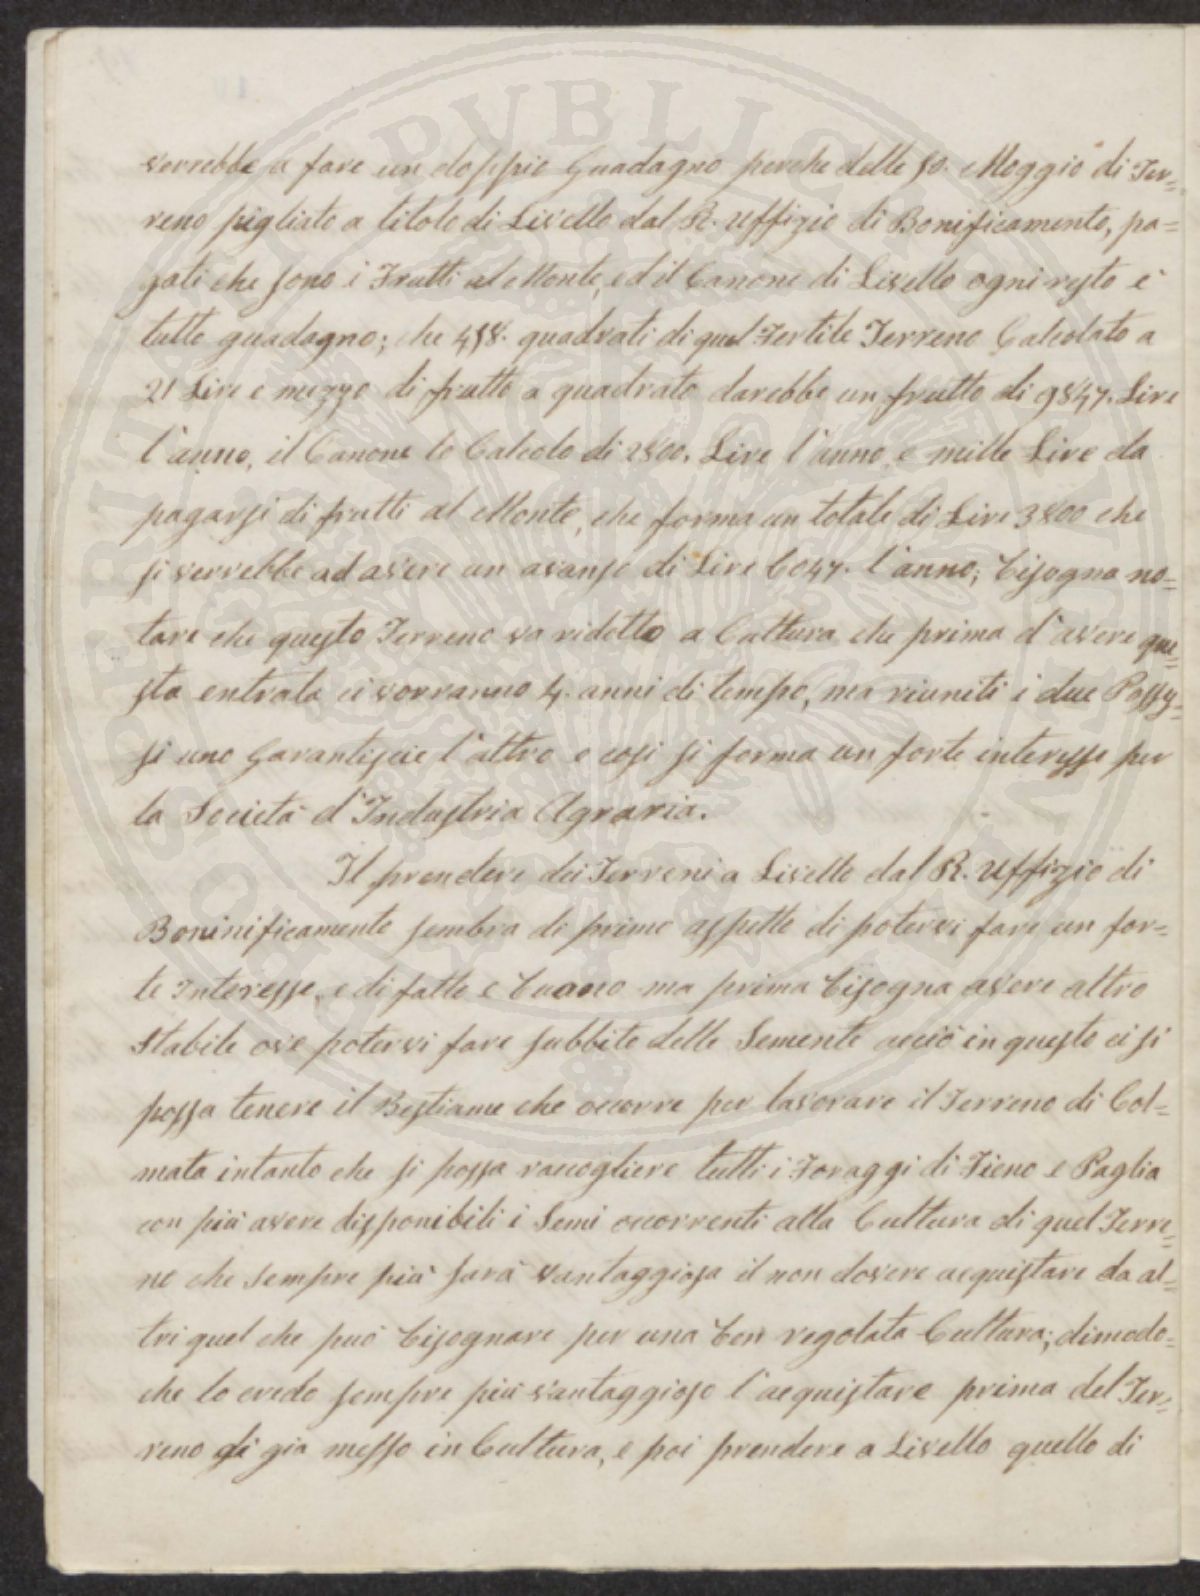 verrebbe a fare un doppio Guadagno perche delle 50. Moggio di Ter=
reno pigliato a titolo di Livello dal R. Uffizio di Bonificamento, pa=
gati che sono i Frutti al Monte, ed il Canone di Livello ogni resto è
tutto guadagno; che 458. quadrati di quel Fertile Terreno Calcolato a
21 Lire e mezzo di frutto a quadrato darebbe un frutto di 9847. Lire
l'anno, il Canone lo Calcolo di 2800. Lire l'anno, e mille Lire da
pagarsi di frutti al Monte, che forma un totale di Lire 3800 che
si verrebbe ad avere un avanso di Lire 6047. l'anno; bisogna no=
tare che questo Terreno va ridotto a Cultura che prima d'avere que=
sta entrata ci vorranno 4. anni di tempo, ma riuniti i due Possy=
si uno Garantiscie l'altro e cosi si forma un forte interesse per
la Società d'Industria Agraria.
Il prendere dei Terreni a Livello dal R. Uffizio di
Boninificamento sembra di primo aspetto di potervi fare un for=
te Interesse, e di fatto e buono ma prima bisogna avere altro
Stabile ove potervi fare subbito delle Semente acciò in questo ci si
possa tenere il Bestiame che occorre per lavorare il Terreno di Col=
mata intanto che si possa raccogliere tutti i Foraggi di Fieno e Paglia
con più avere disponibili i Semi occorrenti alla Cultura di quel Terre=
no che sempre più sarà vantaggiosa il non dovere acquistare da al=
tri quel che può bisognare per una ben regolata Cultura; dimodo=
che lo credo sempre più vantaggioso l'acquistare prima del Ter=
reno di gia messo in Cultura, e poi prendere a Livello quello di
PVBLICE
PROSPERITATI